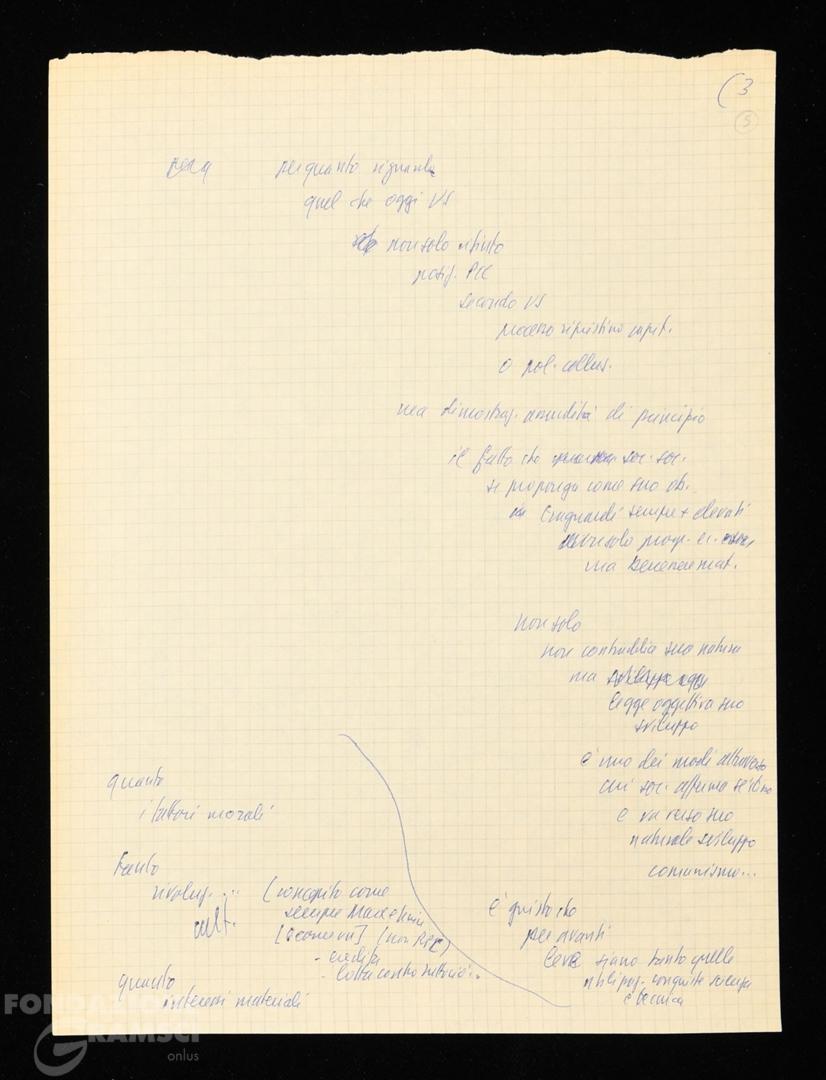 (3
5
per quanto riguarda
quel che oggi VS
non solo rifiuto
posiz. PCC
secondo VS
processo ripristino capit.
o pol. collus.
ma dimostraz. assurdità di principio
il fatto che soc. soc.
si proponga come suo ob.
traguardi sempre + elevati
non solo progr.
ma benessere mat.
non solo
non contraddica sua natura
ma
legge oggettiva suo
sviluppo
è uno dei modi attraverso
cui soc. afferma se stesso
e va verso suo
naturale sviluppo
comunismo...
quanto
i fattori morali
tanto
rivoluz. ... (concepito come
cult.
sempre Marx e Lenin
(non PCC)
- eredità
- lotta contro
quanto
interessi materiali
è giusto che
per avanti
leve siano tanto quelle
utilizzaz. conquiste scienza
e tecnica
FONDAZIONE
GRAMSCI
onlus